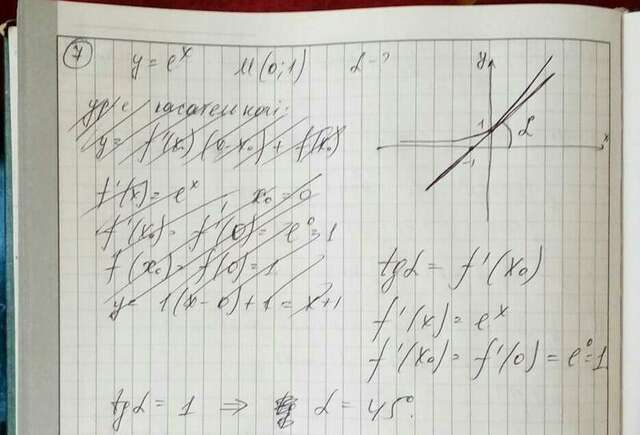 7
y = e^x M(0;1) α - ?
ур-е касательной:
y = f'(x₀)(x-x₀) + f(x₀)
f'(x) = e^x x₀ = 0
f'(x₀) = f'(0) = e⁰ = 1
f(x₀) = f(0) = 1
y = 1(x - 0) + 1 = x + 1
y
1
α
-1
x
tgα = f'(x₀)
f'(x) = e^x
f'(x₀) = f'(0) = e⁰ = 1
tgα = 1 ⇒ α = 45°.